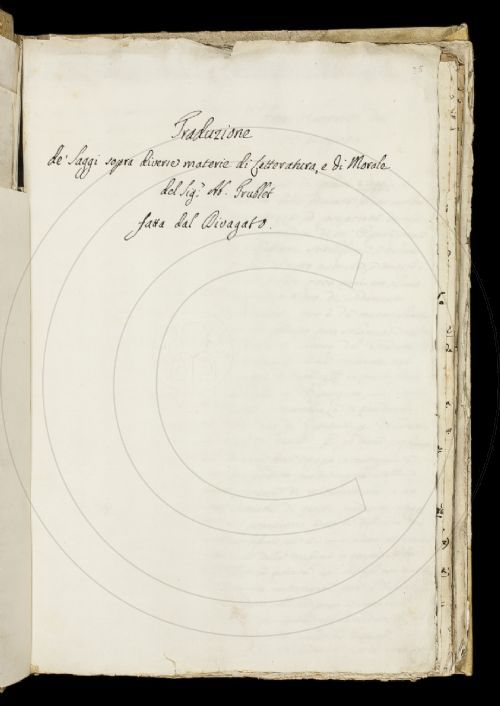 Traduzione
de' Saggi sopra diverse materie di Letteratura, e di Morale
del Sig.r Ab. Trublet
fatta dal Divagato.